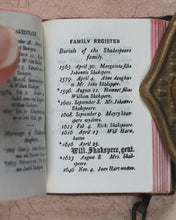 ESPEARE
FAMILY REGISTER
Burials of the Shakespeare
family.
1563 April 30. Margareta filia
Johannis Shakspere.
1579 April 4. Anne daughter
to Mr. John Shakspere.
*1596 August 11. Hamnet filius
William Shakspere.
1601 September 8. Mr. Johannes
Shakspeare.
1608 September 9 Mary
1612 Feb. 4 Rich. Shakspeare.
1616 April 17 Will Hart,
hatter
*1616 April 25.
Will. Shakspere, gent.
*1623 August 8 Mrs.
Shakspeare.
1646 Nov. 4 Joan Hart
Marriages of